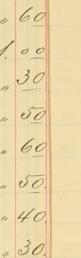 „ 60
1. 00
„ 30
„ 50
„ 60
„ 50.
„ 40.
„ 30.